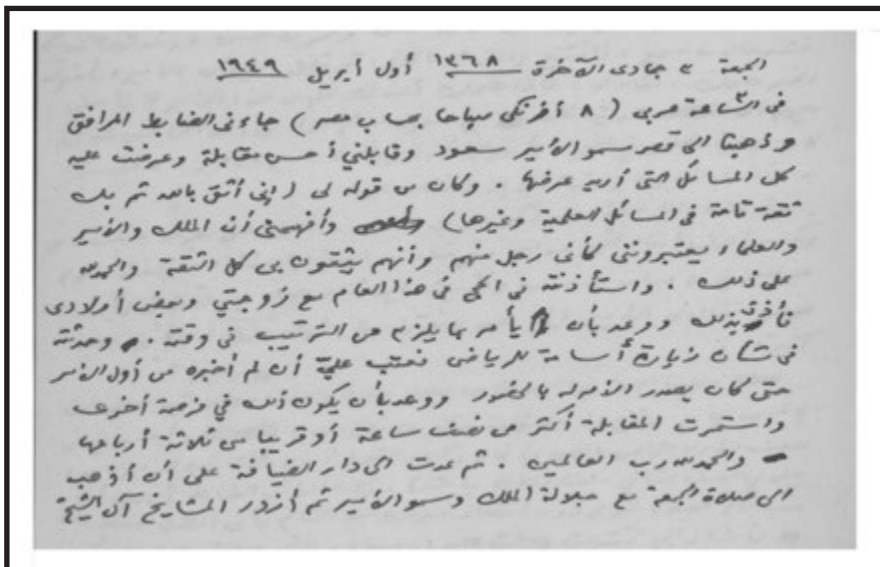 الجمعة ٣ جمادى الآخرة ١٣٦٨ أول أبريل ١٩٤٩
في الساعة عربي (٨ أفرنكي صباحا بحساب مصر) جاءني الضابط المرافق
وذهبنا الى قصر سمو الأمير سعود وقابلني أحسن مقابلة وعرضت عليه
كل المسائل التي أريد عرضها . وكان من قوله لي (إني أثق بالله ثم بك
ثقة تامة في المسائل العلمية وغيرها) وأفهمني أن الملك والأمير
والعلماء يعتبرونني كأني رجل منهم وأنهم يثقون بي كل الثقة والحمد لله
على ذلك . واستأذنته في الحج في هذا العام مع زوجتي وبعض أولادى
فأذن بذلك ووعد بأن يأمر بما يلزم من الترتيب في وقته . وحدثته
في شأن زيارة أسامة للرياض فعتب عليّ أن لم أخبره من أول الأمر
حتى كان يصدر الأمر له بالحضور ووعد بأن يكون ذلك في فرصة أخرى
واستمرت المقابلة أكثر من نصف ساعة أو قريبا من ثلاثة أرباعها
والحمد لله رب العالمين . ثم عدت الى دار الضيافة على أن أذهب
الى صلاة الجمعة مع جلالة الملك وسمو الأمير ثم أزور المشايخ آل الشيخ